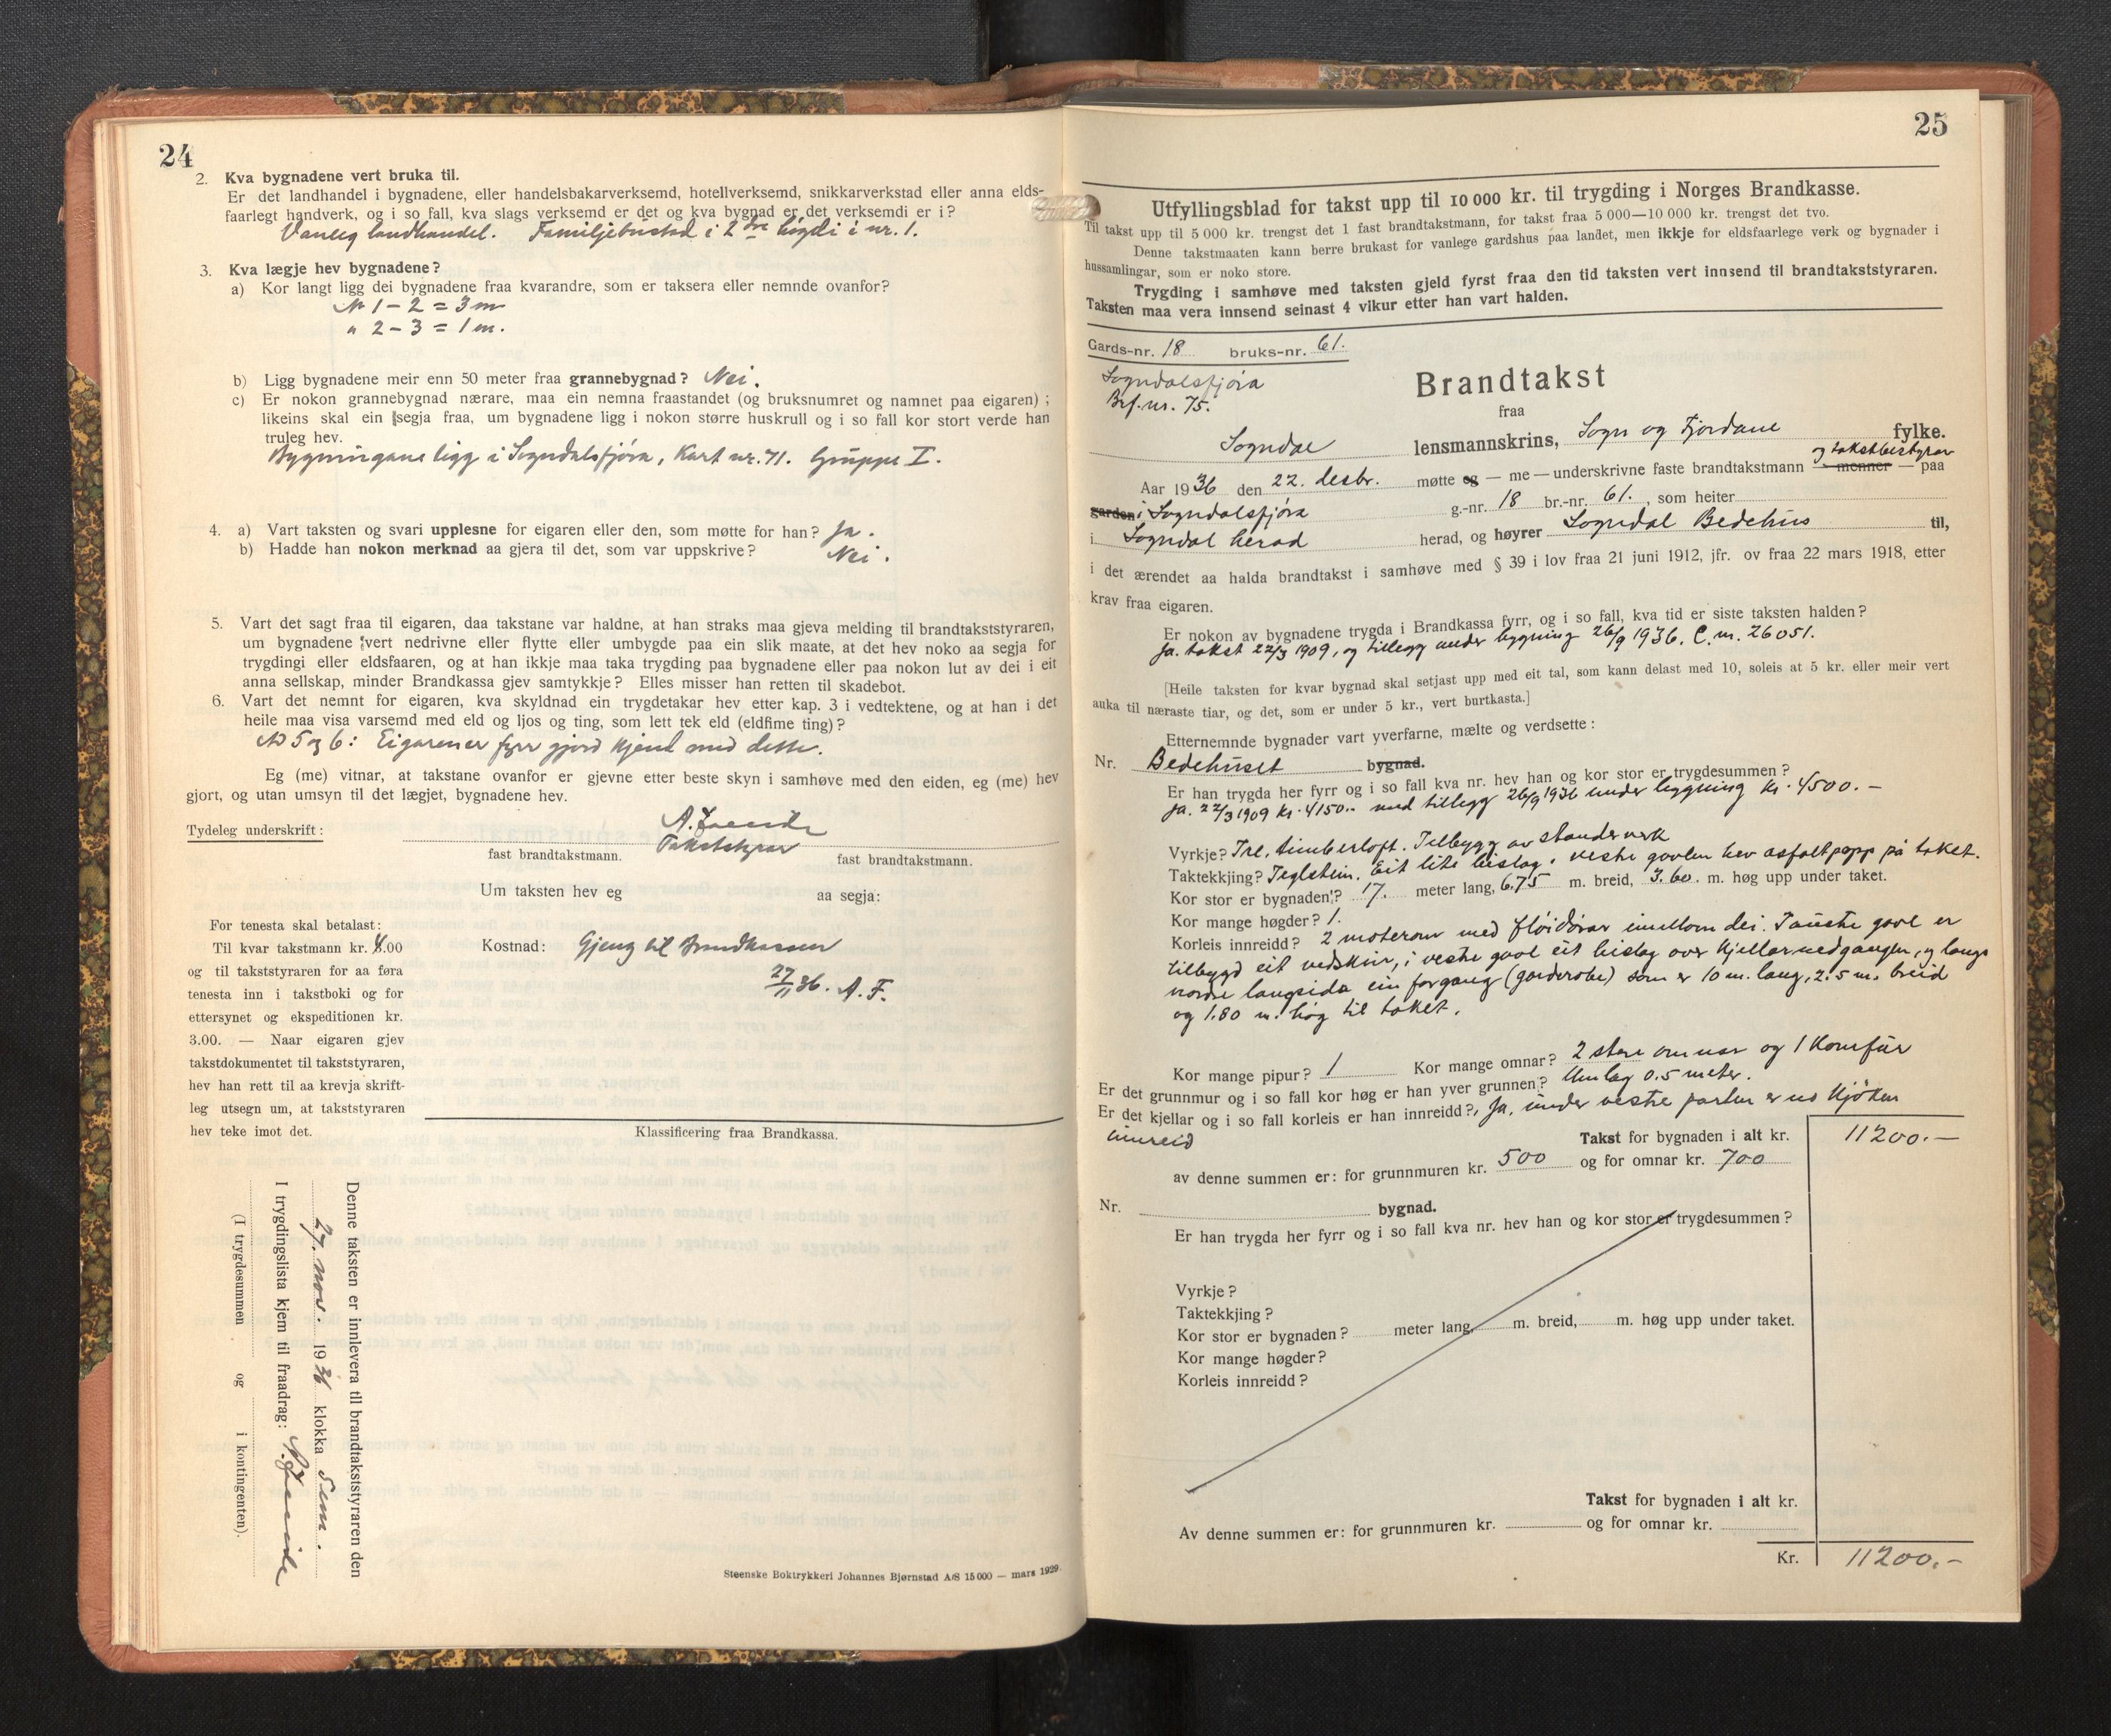 24
2. Kva bygnadene vert bruka til.
Er det landhandel i bygnadene, eller handelsbakarverksemd, hotellverksemd, snikkarverkstad eller anna elds-
faarlegt handverk, og i so fall, kva slags verksemd er det og kva bygnad er det verksemdi er i?
Vanleg landhandel. Familjebustad i 2dre høgdi i nr. 1.
3. Kva lægje hev bygnadene?
a) Kor langt ligg dei bygnadene fraa kvarandre, som er taksera eller nemnde ovanfor?
Nr 1 - 2 = 3 m
" 2 - 3 = 1 m.
b) Ligg bygnadene meir enn 50 meter fraa grannebygnad? Nei.
c) Er nokon grannebygnad nærare, maa ein nemna fraastandet (og bruksnumret og namnet paa eigaren);
likeins skal ein segja fraa, um bygnadene ligg i nokon større huskrull og i so fall kor stort verde han
truleg hev.
Bygningane ligg i Sogndalsfjöra, Kart nr. 71. Gruppe I.
4. a) Vart taksten og svari upplesne for eigaren eller den, som møtte for han? Ja.
b) Hadde han nokon merknad aa gjera til det, som var uppskrive? Nei.
5. Vart det sagt fraa til eigaren, daa takstane var haldne, at han straks maa gjeva melding til brandtakststyraren,
um bygnadene vert nedrivne eller flytte eller umbygde paa ein slik maate, at det hev noko aa segja for
trygdingi eller eldsfaaren, og at han ikkje maa taka trygding paa bygnadene eller paa nokon lut av dei i eit
anna sellskap, minder Brandkassa gjev samtykkje? Elles misser han retten til skadebot.
6. Vart det nemnt for eigaren, kva skyldnad ein trygdetakar hev etter kap. 3 i vedtektene, og at han i det
heile maa visa varsemd med eld og ljos og ting, som lett tek eld (eldfime ting)?
Ad 5 og 6: Eigaren er fyrr gjord kjend med dette.
Eg (me) vitnar, at takstane ovanfor er gjevne etter beste skyn i samhøve med den eiden, eg (me) hev
gjort, og utan umsyn til det lægjet, bygnadene hev.
Tydeleg underskrift:
Takststyrar
fast brandtakstmann. fast brandtakstmann.
Um taksten hev eg aa segja:
For tenesta skal betalast:
Til kvar takstmann kr. .00
og til takststyraren for aa føra
tenesta inn i takstboki og for
ettersynet og ekspeditionen kr.
3.00. — Naar eigaren gjev
takstdokumentet til takststyraren,
hev han rett til aa krevja skrift-
leg utsegn um, at takststyraren
hev teke imot det.
Kostnad: Gjeng til Brandkassen
27/11 36. A. F.
Klassificering fraa Brandkassa.
Denne taksten er innlevera til brandtakststyraren den
27. nov. 1936 klokka 5 em.
I trygdingslista kjem til fraadrag:
(I trygdesummen og i kontingenten).
Steenske Boktrykkeri Johannes Bjørnstad A/S 15 000 — mars 1929.
25
Utfyllingsblad for takst upp til 10 000 kr. til trygding i Norges Brandkasse.
Til takst upp til 5 000 kr. trengst det 1 fast brandtakstmann, for takst fraa 5 000—10 000 kr. trengst det tvo.
Denne takstmaaten kann berre brukast for vanlege gardshus paa landet, men ikkje for eldsfaarlege verk og bygnader i
hussamlingar, som er noko store.
Trygding i samhøve med taksten gjeld fyrst fraa den tid taksten vert innsend til brandtakststyraren.
Taksten maa vera innsend seinast 4 vikur etter han vart halden.
Gards-nr. 18 bruks-nr. 61.
Sogndalsfjöra
Brf. nr. 75.
Brandtakst
fraa
Sogndal lensmannskrins, Sogn og Fjordane fylke.
og takstbestyrar
Aar 1936 den 22. desbr. møtte eg — me — underskrivne faste brandtakstmann — menner — paa
garden i Sogndalsfjöra g.-nr. 18 br.-nr. 61., som heiter
i Sogndal herad herad, og høyrer Sogndal Bedehus til,
i det ærendet aa halda brandtakst i samhøve med § 39 i lov fraa 21 juni 1912, jfr. ov fraa 22 mars 1918, etter
krav fraa eigaren.
Er nokon av bygnadene trygda i Brandkassa fyrr, og i so fall, kva tid er siste taksten halden?
Ja. takst 22/3 1909, og tillegg under bygning 26/9 1936. C. nr. 26051.
[Heile taksten for kvar bygnad skal setjast upp med eit tal, som kann delast med 10, soleis at 5 kr. eller meir vert
auka til næraste tiar, og det, som er under 5 kr., vert burtkasta.]
Etternemnde bygnader vart yverfarne, mælte og verdsette:
Nr. Bedehuset bygnad.
Er han trygda her fyrr og i so fall kva nr. hev han og kor stor er trygdesummen?
Ja. 22/3 1909 kr. 4150.- med tillegg 26/9 1936 under bygning kr. 4500.-
Vyrkje? Tre, timberloft. Tilbygg av standerverk
Taktekkjing? Teglstein. Eit lite bislag i vestre gavlen hev asfaltpapp på taket.
Kor stor er bygnaden? 17. meter lang, 6.75 m. breid, 3.60. m. høg upp under taket.
Kor mange høgder? 1.
Korleis innreidd? 2 møterom med fløidörar imellom dei. I austre gavl er
tilbygd eit vedskur, i vestre gavl eit bislag over kjellarnedgangen, og langs
nordre langsida ein forgang (garderobe) som er 10 m. lang, 2.5 m. breid
og 1.80 m. høg til taket.
Kor mange pipur? 1 Kor mange omnar? 2 store omnar og 1 komfür
Er det grunnmur og i so fall kor høg er han yver grunnen? Umlag 0.5 meter.
Er det kjellar og i so fall korleis er han innreidd? Ja, under vestre parten er no kjöken
innreid
Takst for bygnaden i alt kr. 11200.—
av denne summen er: for grunnmuren kr. 500 og for omnar kr. 700
Nr. bygnad.
Er han trygda her fyrr og i so fall kva nr. hev han og kor stor er trygdesummen?
Vyrkje?
Taktekkjing?
Kor stor er bygnaden? meter lang, m. breid, m. høg upp under taket.
Kor mange høgder?
Korleis innreidd?
Takst for bygnaden i alt kr.
Av denne summen er: for grunnmuren kr. og for omnar kr.
Kr. 11200.-